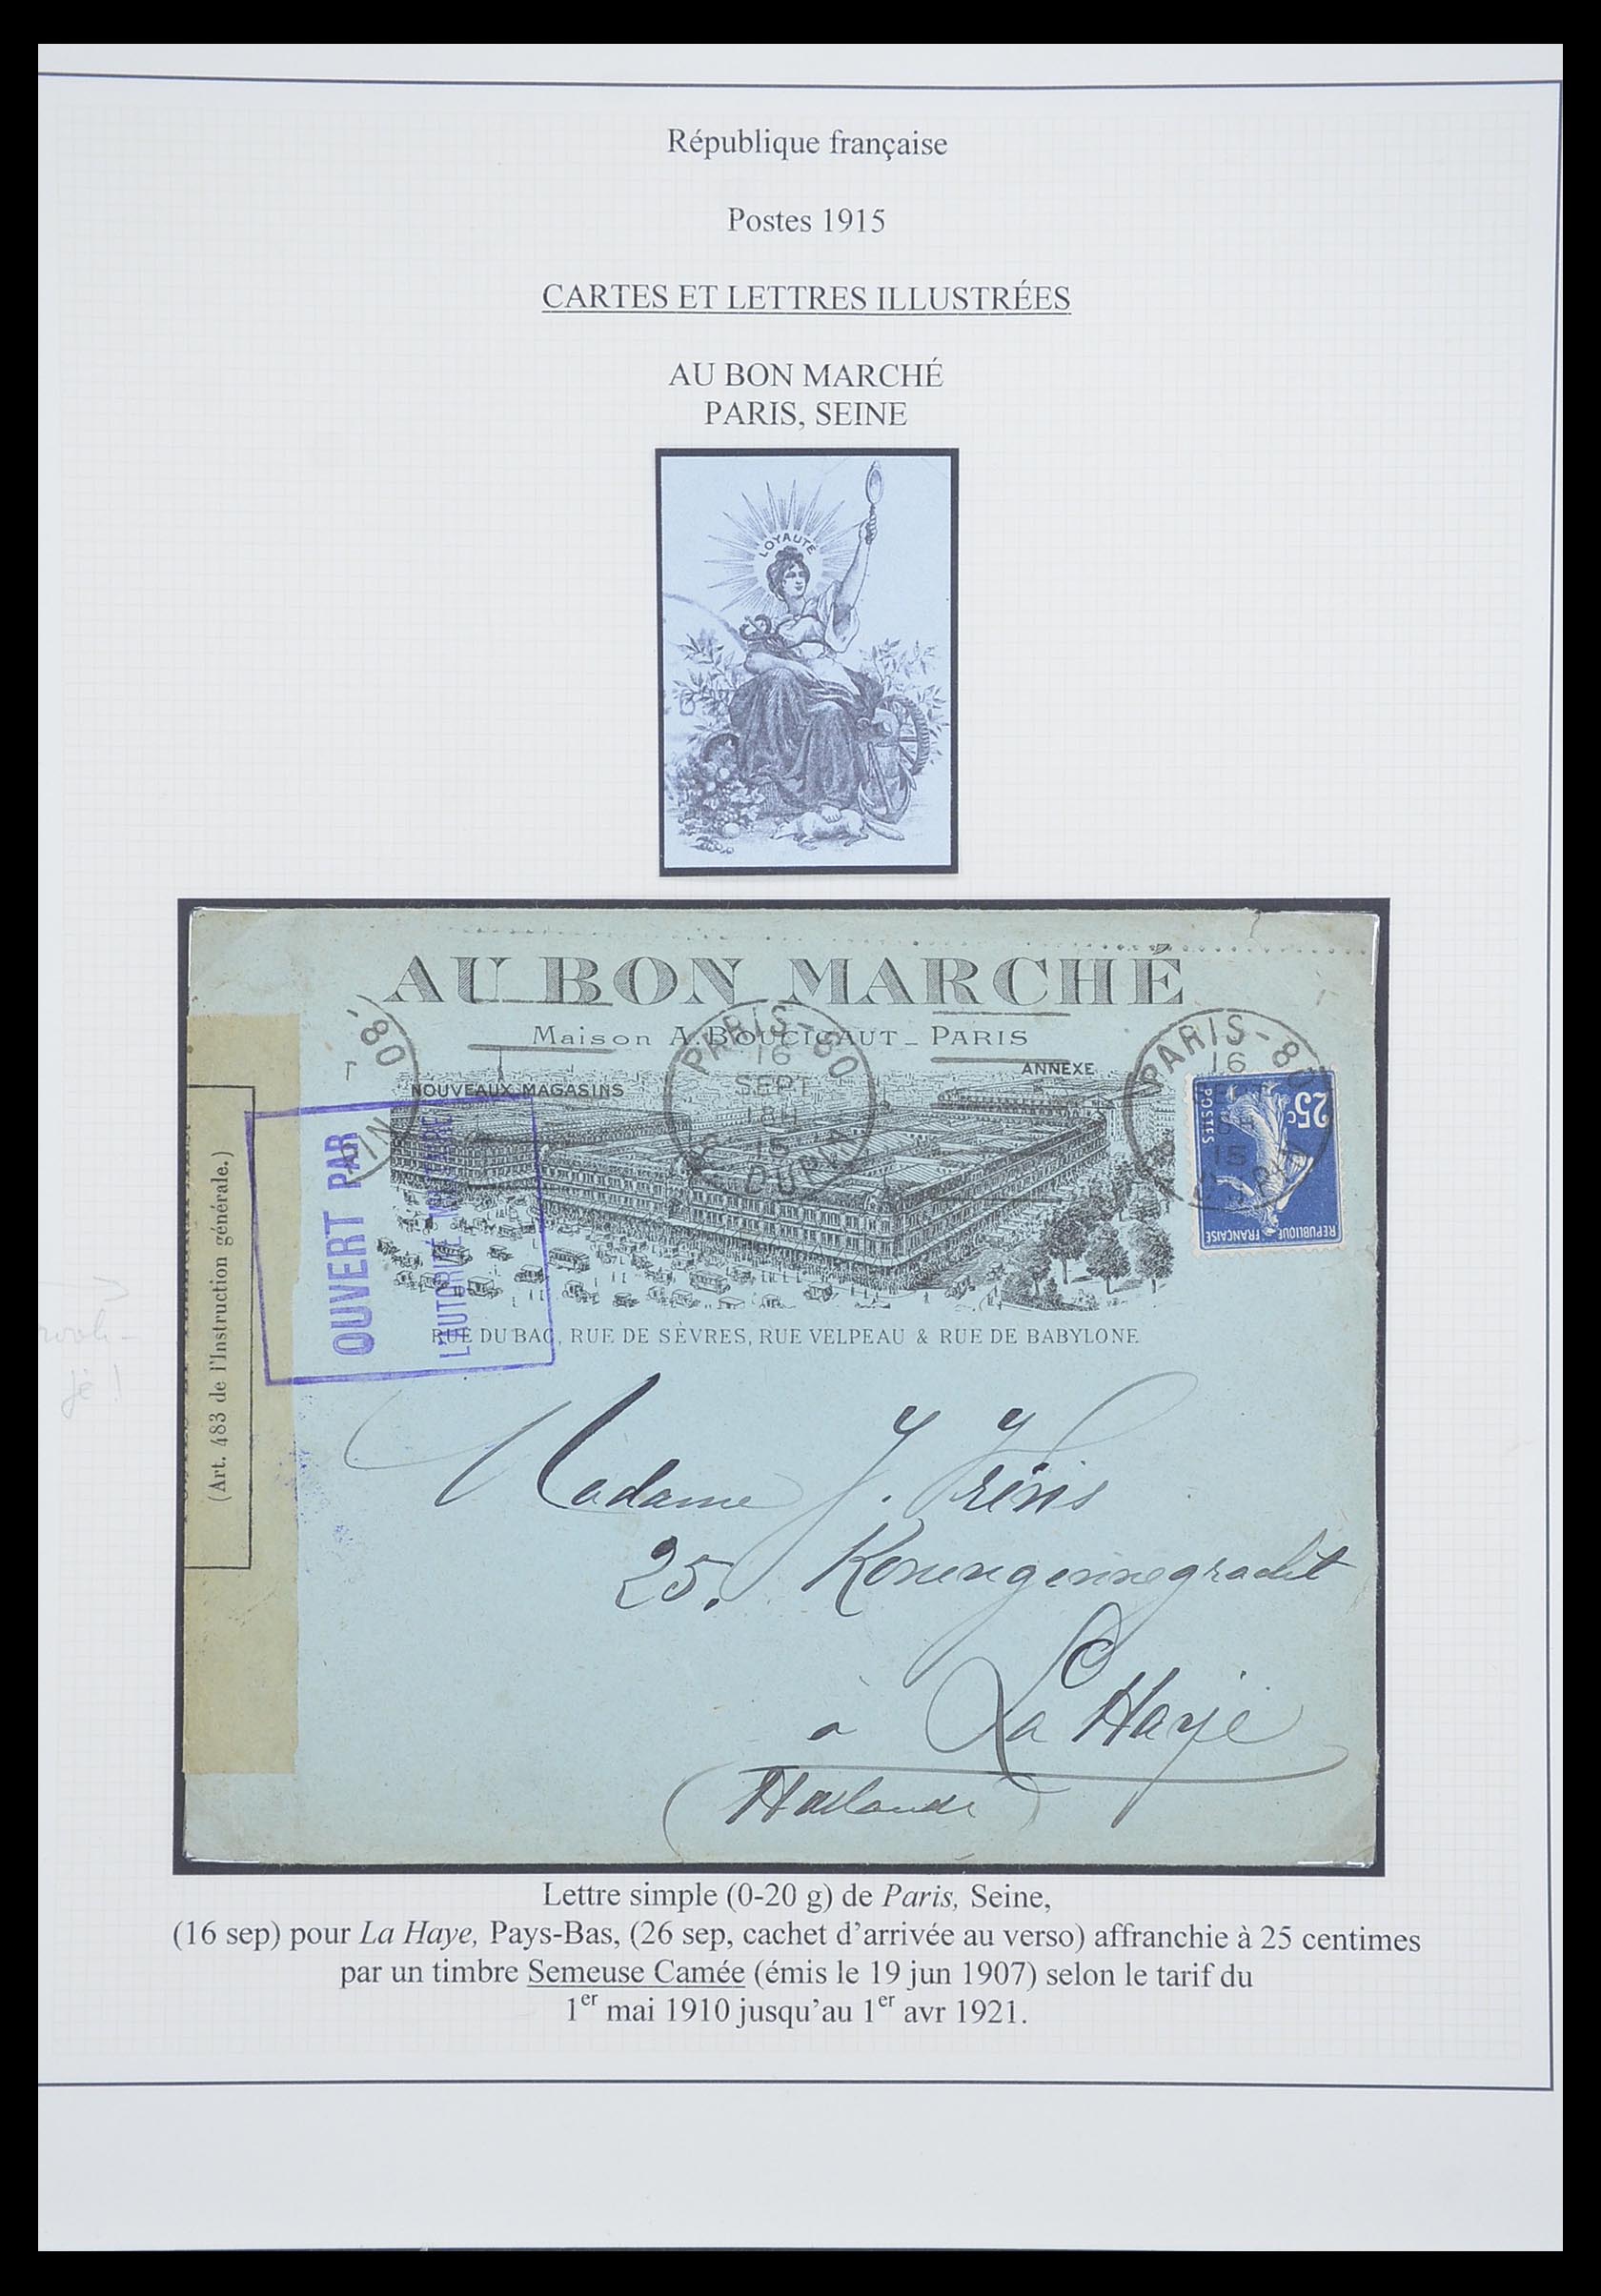 République française
Postes 1915
CARTES ET LETTRES ILLUSTRÉES
AU BON MARCHÉ
PARIS, SEINE
LOYAUTÉ
AU BON MARCHÉ
Maison A. BOUCICAUT _ PARIS
NOUVEAUX MAGASINS
ANNEXE
PARIS-80
16
SEPT
18H
15
PARIS-80
16
15
25c
POSTES
REPUBLIQUE FRANÇAISE
(Art. 483 de l'Instruction générale.)
OUVERT PAR
L'AUTORITÉ MILITAIRE
RUE DU BAC, RUE DE SÈVRES, RUE VELPEAU & RUE DE BABYLONE
Madame J.
25.
à La Haye
Hollande
Lettre simple (0-20 g) de Paris, Seine,
(16 sep) pour La Haye, Pays-Bas, (26 sep, cachet d'arrivée au verso) affranchie à 25 centimes
par un timbre Semeuse Camée (émis le 19 jun 1907) selon le tarif du
1er mai 1910 jusqu'au 1er avr 1921.